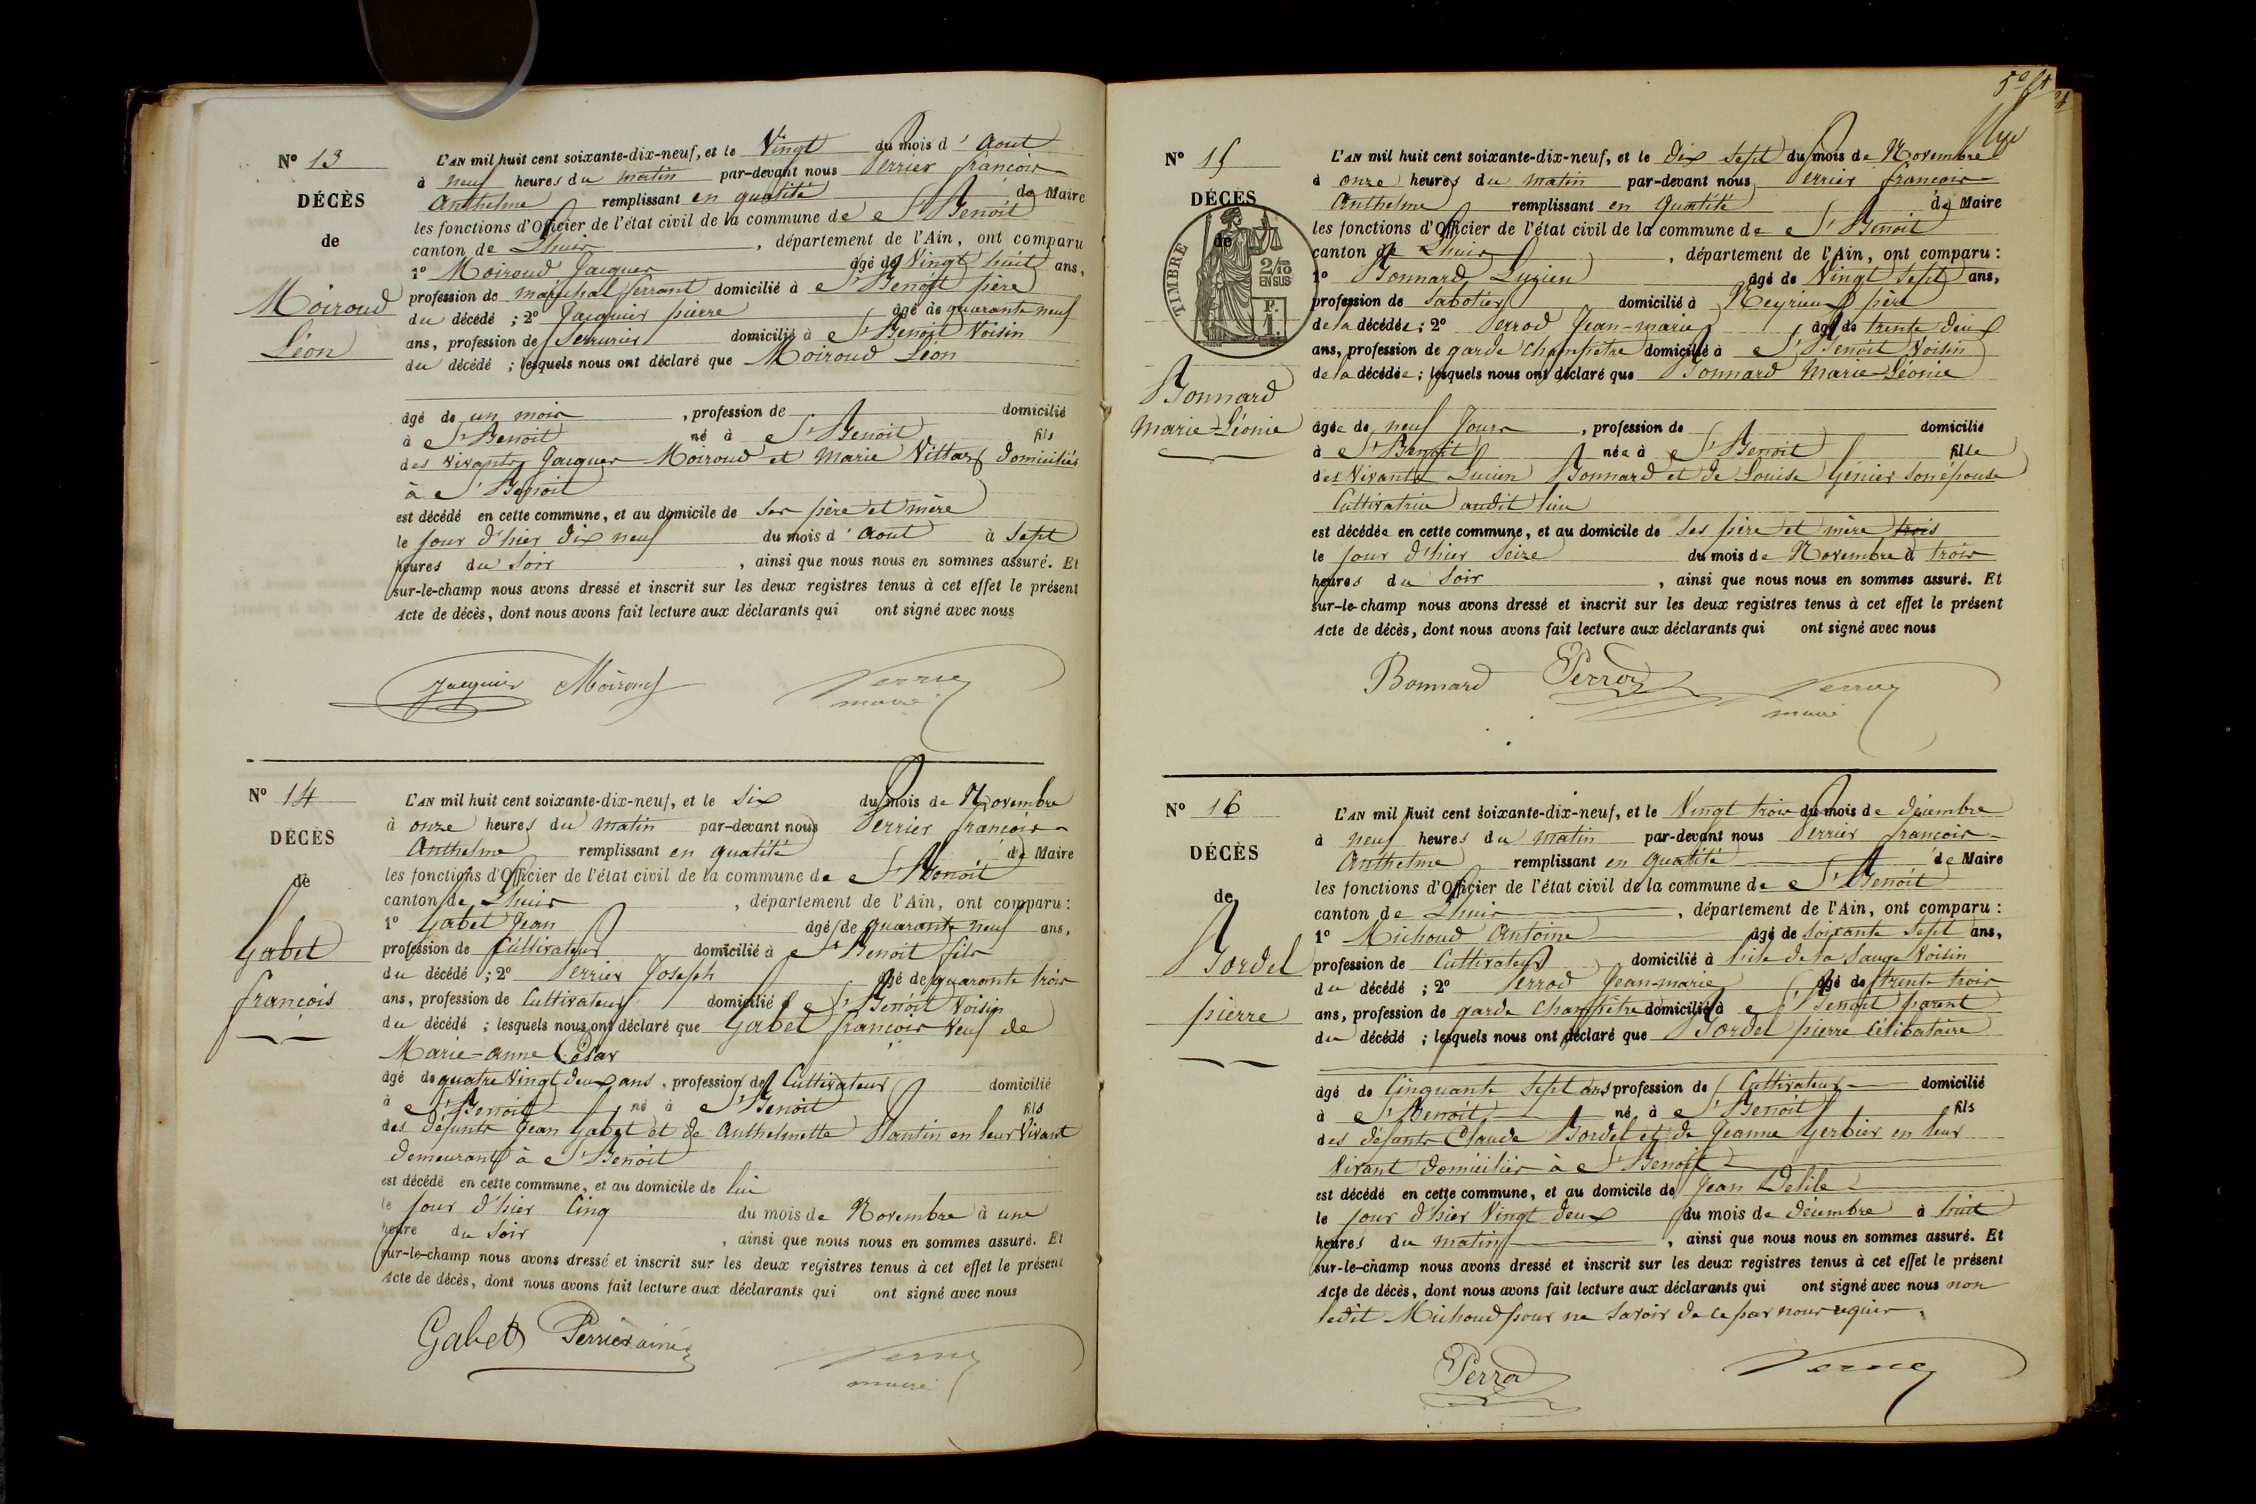 N° 13
DÉCÈS
de
Moiroud
Léon
L'AN mil huit cent soixante-dix-neuf, et le Vingt du mois d'Aout
à neuf heures du matin par-devant nous Perrier françois
Anthelme remplissant en qualité de Maire
les fonctions d'Officier de l'état civil de la commune de St Benoit
canton de Lhuis, département de l'Ain, ont comparu
1° Moiroud Jacques âgé de Vingt huit ans,
profession de maréchal ferrant domicilié à St Benoit père
du décédé ; 2° Jacquier pierre âgé de quarante neuf
ans, profession de Serrurier domicilié à St Benoit Voisin
du décédé ; lesquels nous ont déclaré que Moiroud Léon
âgé de un mois, profession de domicilié
à St Benoit né à St Benoit fils
des vivants Jacques Moiroud et Marie Vittoz domiciliés
à St Benoit
est décédé en cette commune, et au domicile de ses père et mère
le jour d'hier dix neuf du mois d'Aout à sept
heures du soir, ainsi que nous nous en sommes assuré. Et
sur-le-champ nous avons dressé et inscrit sur les deux registres tenus à cet effet le présent
Acte de décès, dont nous avons fait lecture aux déclarants qui ont signé avec nous
Jacquier Moiroud
maire
N° 14
DÉCÈS
de
Gabet
françois
L'AN mil huit cent soixante-dix-neuf, et le six du mois de Novembre
à onze heures du matin par-devant nous Perrier françois
Anthelme remplissant en qualité de Maire
les fonctions d'Officier de l'état civil de la commune de St Benoit
canton de Lhuis, département de l'Ain, ont comparu :
1° Gabet Jean âgé de quarante neuf ans,
profession de Cultivateur domicilié à St Benoit fils
du décédé ; 2° Perrier Joseph âgé de quarante trois
ans, profession de Cultivateur domicilié à St Benoit Voisin
du décédé ; lesquels nous ont déclaré que Gabet françois Veuf de
Marie-Anne César
âgé de quatre Vingt deux ans, profession de Cultivateur domicilié
à St Benoit né à St Benoit fils
des défunts Jean Gabet et de Anthelmette Plantin en leur Vivant
demeurant à St Benoit
est décédé en cette commune, et au domicile de lui
le jour d'hier Cinq du mois de Novembre à une
heure du soir, ainsi que nous nous en sommes assuré. Et
sur-le-champ nous avons dressé et inscrit sur les deux registres tenus à cet effet le présent
Acte de décès, dont nous avons fait lecture aux déclarants qui ont signé avec nous
Gabet Perrier ainé
maire
N° 15
DÉCÈS
de
TIMBRE
2/10
EN SUS
Bonnard
Marie-Léonie
L'AN mil huit cent soixante-dix-neuf, et le dix sept du mois de Novembre
à onze heures du matin par-devant nous Perrier françois
Anthelme remplissant en qualité de Maire
les fonctions d'Officier de l'état civil de la commune de St Benoit
canton de Lhuis, département de l'Ain, ont comparu :
1° Bonnard Lucien âgé de Vingt Sept ans,
profession de Sabotier domicilié à Meyrieu père
de la décédée ; 2° Perrod Jean-marie âgé de trente deux
ans, profession de garde Champêtre domicilié à St Benoit Voisin
de la décédée ; lesquels nous ont déclaré que Bonnard Marie-Léonie
âgée de neuf Jours, profession de domicilié
à St Benoit née à St Benoit fille
des Vivants Lucien Bonnard et de Louise Génier son épouse
Cultivatrice audit lieu
est décédée en cette commune, et au domicile de ses père et mère trois
le jour d'hier Seize du mois de Novembre à trois
heures du soir, ainsi que nous nous en sommes assuré. Et
sur-le-champ nous avons dressé et inscrit sur les deux registres tenus à cet effet le présent
Acte de décès, dont nous avons fait lecture aux déclarants qui ont signé avec nous
Bonnard Perrod
maire
N° 16
DÉCÈS
de
Bordel
pierre
L'AN mil huit cent soixante-dix-neuf, et le Vingt trois du mois de décembre
à neuf heures du matin par-devant nous Perrier françois
Anthelme remplissant en qualité de Maire
les fonctions d'Officier de l'état civil de la commune de St Benoit
canton de Lhuis, département de l'Ain, ont comparu :
1° Michoud Antoine âgé de soixante sept ans,
profession de Cultivateur domicilié à l'isle de la Sauge Voisin
du décédé ; 2° Perrod Jean-marie âgé de trente trois
ans, profession de garde Champêtre domicilié à St Benoit parent
du décédé ; lesquels nous ont déclaré que Bordel pierre Célibataire
âgé de Cinquante Sept ans profession de Cultivateur domicilié
à St Benoit né à St Benoit fils
des défunts Claude Bordel et de Jeanne Gerbier en leur
Vivant domiciliés à St Benoit
est décédé en cette commune, et au domicile de Jean Delile
le jour d'hier Vingt deux du mois de décembre à huit
heures du matin, ainsi que nous nous en sommes assuré. Et
sur-le-champ nous avons dressé et inscrit sur les deux registres tenus à cet effet le présent
Acte de décès, dont nous avons fait lecture aux déclarants qui ont signé avec nous non
ledit Michoud pour ne savoir de ce par nous requis.
Perrod